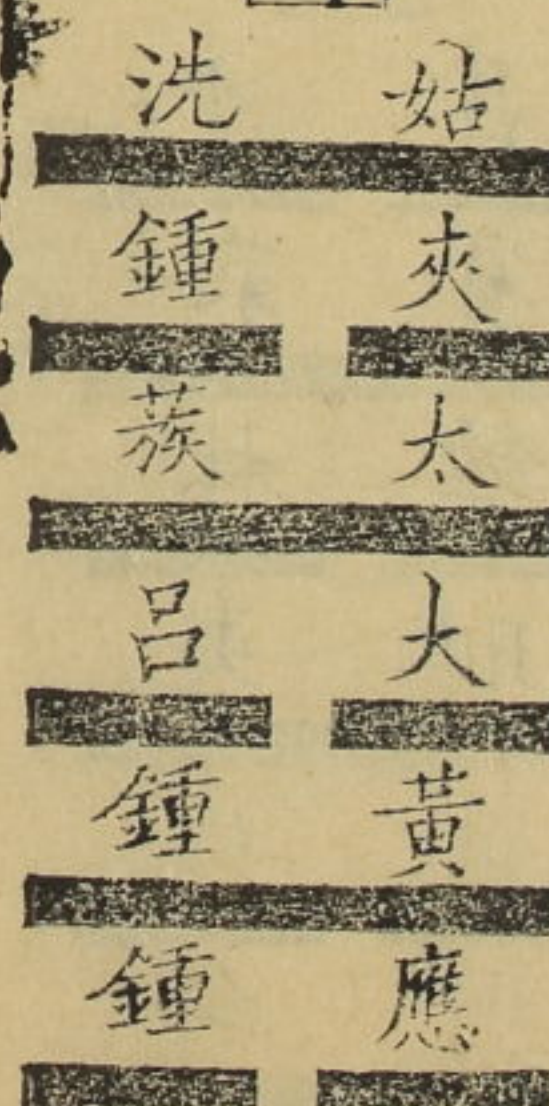 姑洗
夾鍾
太蔟
大吕
黃鍾
應鍾